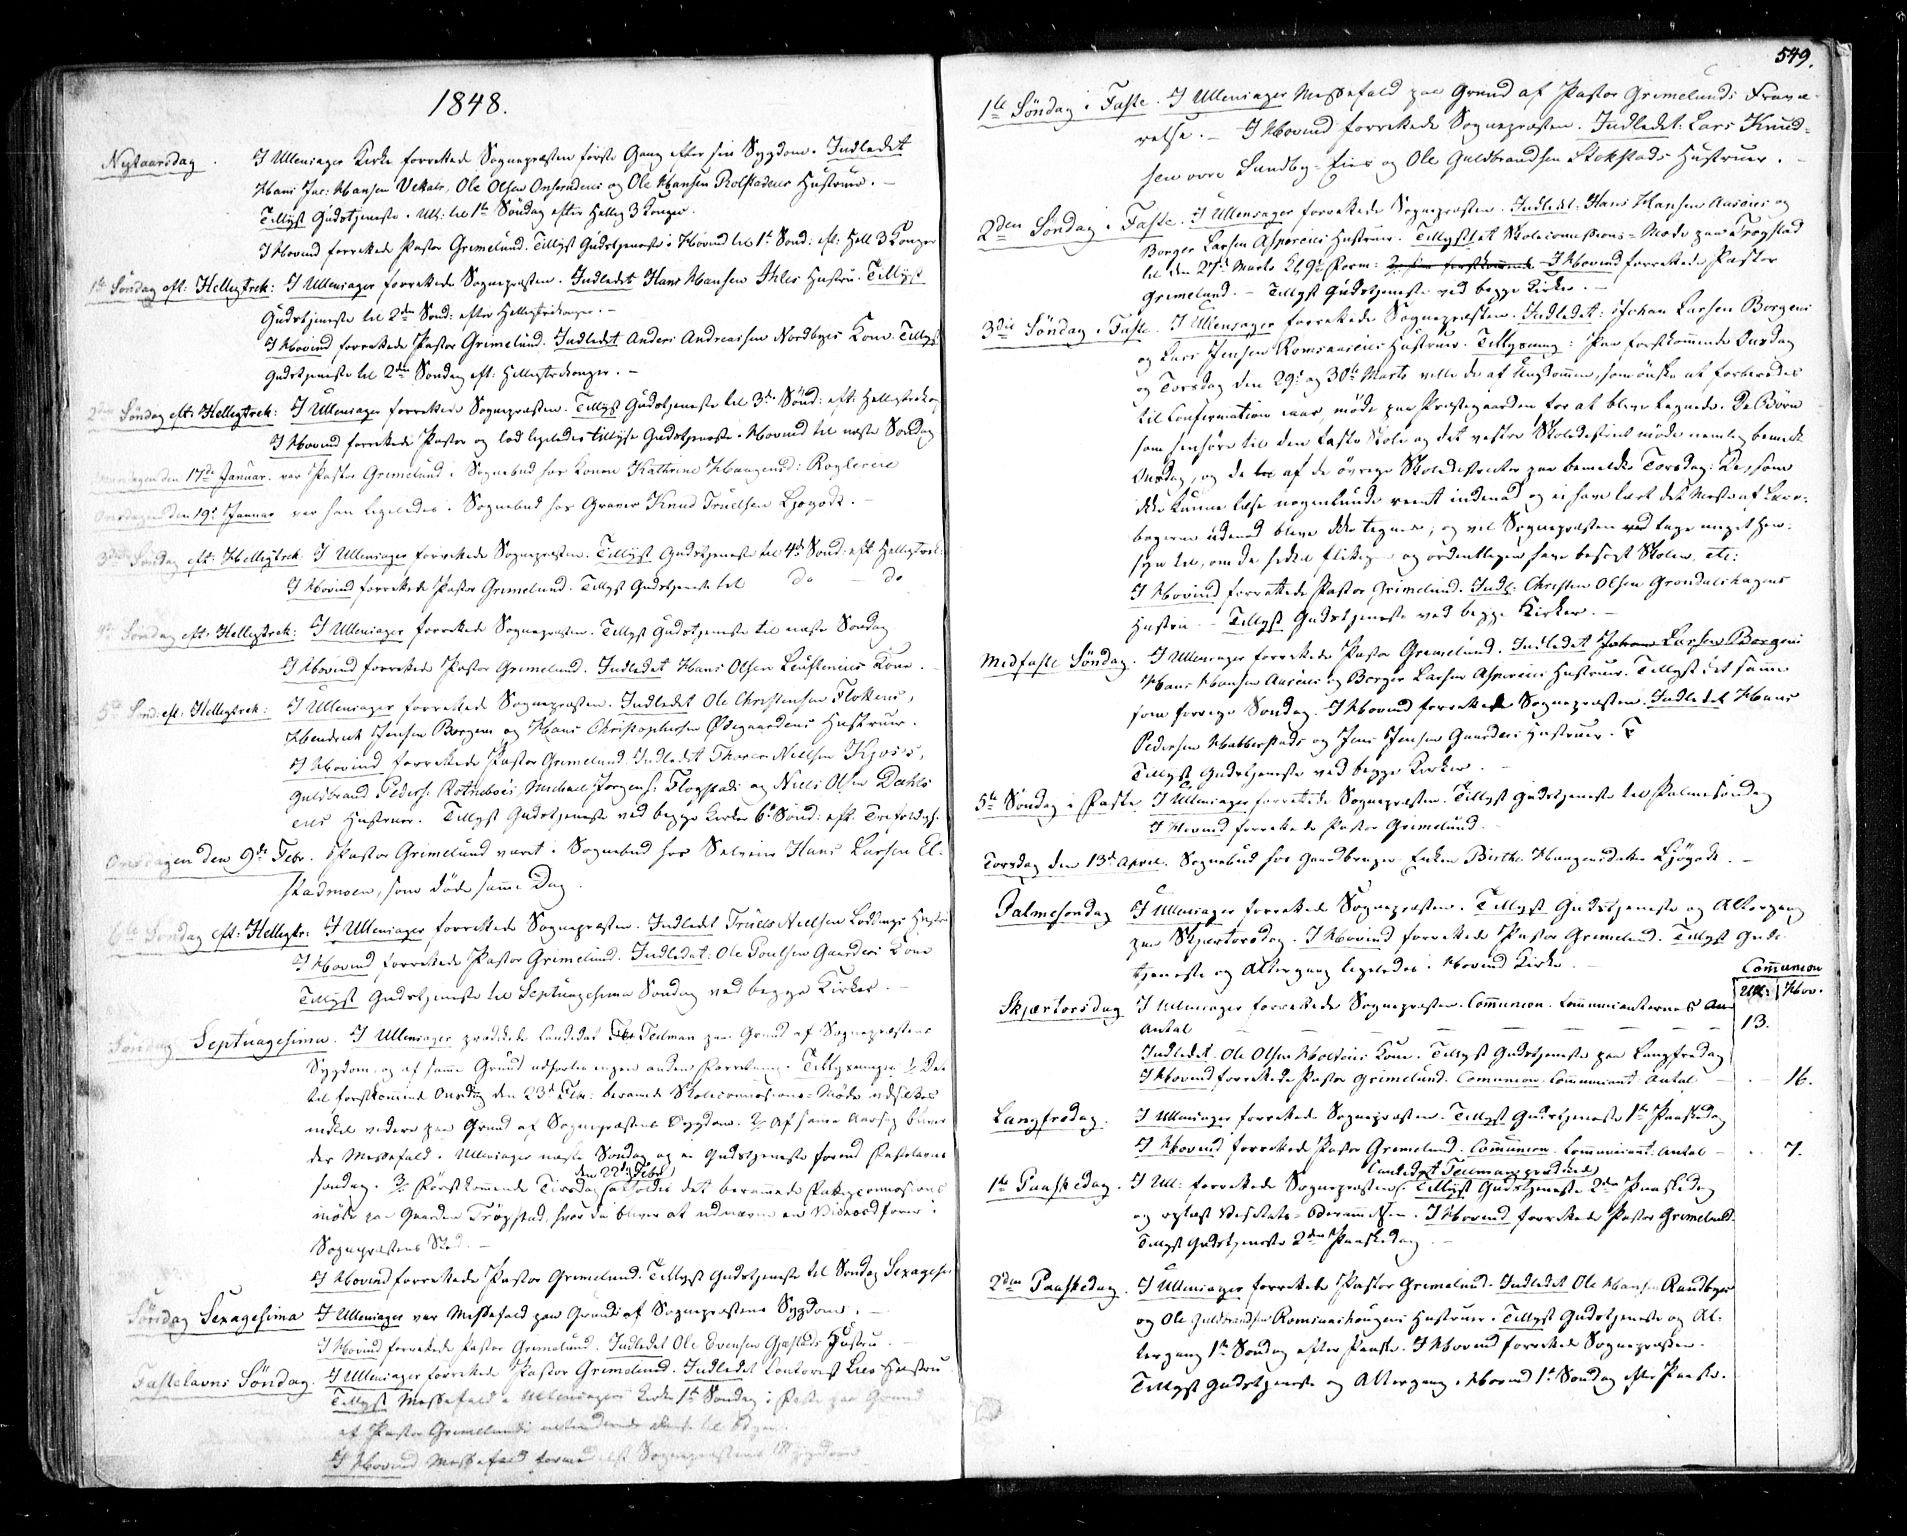 1848.
Nytaarsdag. I Ullensager Kirke forrettede Sognepræsten første Gang efter sin Sygdom. Indledet
Hans Jac: Hansen Ole Olsen og Ole Hansen Hustruer. —
Tillyst Gudstjeneste i Ull: til 1ste Søndag efter Hellig 3 Konger.
I Hovind forrettede Pastor Grimelund. Tillyst Gudstjeneste i Hovind til 1ste Sønd: eft: Hell 3 Konger
1ste Søndag eft: Helligtrek: I Ullensager forrettede Sognepræsten. Indledet Hans Hansen Hustru. Tillyst
Gudstjeneste til 2den Sønd: efter Helligtrekonger. —
I Hovind forrettede Pastor Grimelund. Indledet Anders Andreassen Nordbyes Kone. Tillyst
Gudstjeneste til 2den Søndag eft: Helligtrekonger. —
2den Søndag eft: Helligtrek: I Ullensager forrettede Sognepræsten. Tillyst Gudstjeneste til 3die Sønd: eft: Helligtrekong
I Hovind forrettede Pastor og lod ligeledes tillyse Gudstjeneste i Hovind til næste Søndag
Mandagen den 17de Januar. var Pastor Grimelund i Sognebud hos Konen Kathrine Haagensd:
Onsdagen den 19de Januar var han ligeledes i Sognebud hos Graver Knud Truelsen Ljøgodt. —
3die Søndag eft: Helligtrek I Ullensager forrettede Sognepræsten. Tillyst Gudstjeneste til 4de Sønd: eft Helligtrek:
I Hovind forrettede Pastor Grimelund. Tillyst Gudstjeneste til do — do
4de Søndag eft: Helligtrek: I Ullensager forrettede Sognepræsten. Tillyst Gudstjeneste til næste Søndag
I Hovind forrettede Pastor Grimelund. Indledet Hans Olsen Kone. —
5te Sønd: eft: Helligtrek: I Ullensager forrettede Sognepræsten. Indledet Ole Christensen
Hendrik Jensen Borgens og Hans Christophersen Ødegaardens Hustruer.
I Hovind forrettede Pastor Grimelund. Indledet Thorer Nielsen
Guldbrand Peders: Michael Jørgens: Flogstads og Niels Olsen Dahls
Hustruer. Tillyst Gudstjeneste ved begge Kirker 6te Sønd: eft:
Onsdagen den 9de Febr. Pastor Grimelund været i Sognebud hos Hans Larsen El-
stadmoen, som døde samme Dag.
6te Søndag eft: Helligtr: I Ullensager forrettede Sognepræsten. Indledet Truels Nielsen Hustru
I Hovind forrettede Pastor Grimelund. Indledet: Ole Poulsen Gaarders Kone
Tillyst Gudstjeneste til Septuagesima Søndag ved begge Kirker. —
Søndag Septuagesima. I Ullensager prædikede Candidat Tellman paa Grund af Sognepræstens
Sygdom, og af samme Grund udførtes ingen anden Forretning. Tillysninger: 1/ Det
til førstkommende Onsdag den 23de Febr: berammede Skolecommissions-Møde udsættes
indtil videre paa Grund af Sognepræstens Sygdom. 2/ Af samme Aarsag bliver
der Messefald i Ullensager næste Søndag og ei Gudstjeneste førend Fastelavns
søndag. 3/ Førstkommende Tirsdag den 22de Febr afholdes det berammede
møde paa Gaarden Trøgstad, hvor da bliver at udnævne en i
Sognepræstens Sted. —
I Hovind forrettede Pastor Grimelund. Tillyst Gudstjeneste til Søndag Sexagesi
Søndag Sexagesima I Ullensager var Messefald paa Grund af Sognepræstens Sygdom. —
I Hovind forrettede Pastor Grimelund. Indledet Ole Evensen Hustru.
Fastelavns Søndag. I Ullensager forrettede Pastor Grimelund. Indledet Lies Hustru
Tillyst Messefald i Ullensagers Kirke 1ste Søndag i Faste paa Grund
af Pastor Grimelunds
I Hovind Messefald formedelst Sognepræstens Sygdom
549.
1ste Søndag i Faste. I Ullensager Messefald paa Grund af Pastor Grimelunds Fravæ-
relse. — I Hovind forrettede Sognepræsten. Indledet: Lars Knud-
sen Sundby-Eies og Ole Guldbrandsen Stokstads Hustruer. —
2den Søndag i Faste. I Ullensager forrettede Sognepræsten. Indledet: Hans Hansen og
Borger Larsen Hustruer. Tillyst et Skolecommissions-Møde paa Trøgstad
til den 27de Marts Kl. 9 Form: I Hovind forrettede Pastor
Grimelund. — Tillyst Gudstjeneste ved begge Kirker. —
3die Søndag i Faste. I Ullensager forrettede Sognepræsten. Indledet: Johan Larsen Borgens
og Lars Jensen Hustruer. Tillysning: Paa førstkommende Onsdag
og Torsdag den 29de og 30te Marts ville de af Ungdommen, som ønske at forberedes
til Confirmation iaar, møde paa Præstegaarden for at blive tegnede. De Børn
som henhøre til den faste Skole og det vestre Skoledistrict møde nemlig bemeldte
Onsdag, og de af de øvrige Skoledistricter paa bemeldte Torsdag: De, som
ikke kunne læse nogenlunde reent indenad og ei have lært det Meste af Lære-
bøgerne udenad blive ikke tegnede; og vil Sognepræsten tage meget Hen-
syn til, om de have flittigen og ordentligen have besøgt Skolen, etc:
I Hovind forrettede Pastor Grimelund. Indl: Christen Olsen Grøndalshagens
Hustru. — Tillyst Gudstjeneste ved begge Kirker. —
Midfaste Søndag. I Ullensager forrettede Pastor Grimelund. Indledet Johan Larsen Borgens
Hans Hansen og Borger Larsen Hustruer. Tillyst det samme
som forrige Søndag. I Hovind forrettede Sognepræsten. Indledet Hans
Pedersen og Jens Jensen Gaarders Hustruer.
Tillyst Gudstjeneste ved begge Kirker. —
5te Søndag i Faste I Ullensager forrettede Sognepræsten. Tillyst Gudstjeneste til Palmesøndag
I Hovind forrettede Pastor Grimelund.
Torsdag den 13de April. Sognebud hos Gaardbruger Enken Birthe Haagensdatter Ljøgodt. —
Palmesøndag I Ullensager forrettede Sognepræsten. Tillyst Gudstjeneste og Altergang
paa Skjærtorsdag. I Hovind forrettede Pastor Grimelund. Tillyst Guds-
tjeneste og Altergang ligeledes i Hovind Kirke. —
Communion
Ull: Hov.
Skjærtorsdag I Ullensager forrettede Sognepræsten. Communion. Communicanternes An
Antal — — — — 13.
Indledet: Ole Olsen Kone. Tillyst Gudstjeneste paa Langfredag
I Hovind forrettede Pastor Grimelund. Communion. Communicant: Antal — 16.
Langfredag. I Ullensager forrettede Sognepræsten. Tillyst Gudstjeneste 1ste Paaskedag
I Hovind forrettede Pastor Grimelund. Communion. Communicant: Antal — 7.
Candidat Tellman prædikede
1ste Paaskedag. I Ull: forrettede Sognepræsten. Tillyst Gudstjeneste 2den Paaskedag
og oplæst Visitats-Berammelsen. I Hovind forrettede Pastor Grimelund.
Tillyst Gudstjeneste 2den Paaskedag
2den Paaskedag. I Ullensager forrettede Pastor Grimelund. Indledet Ole Hansen Randbyes
og Ole Guldbrandsen Hustruer. Tillyst Gudstjeneste og Al-
tergang 1ste Søndag efter Paaske. I Hovind forrettede Sognepræsten.
Tillyst Gudstjeneste og Altergang i Hovind 1ste Søndag efter Paaske.